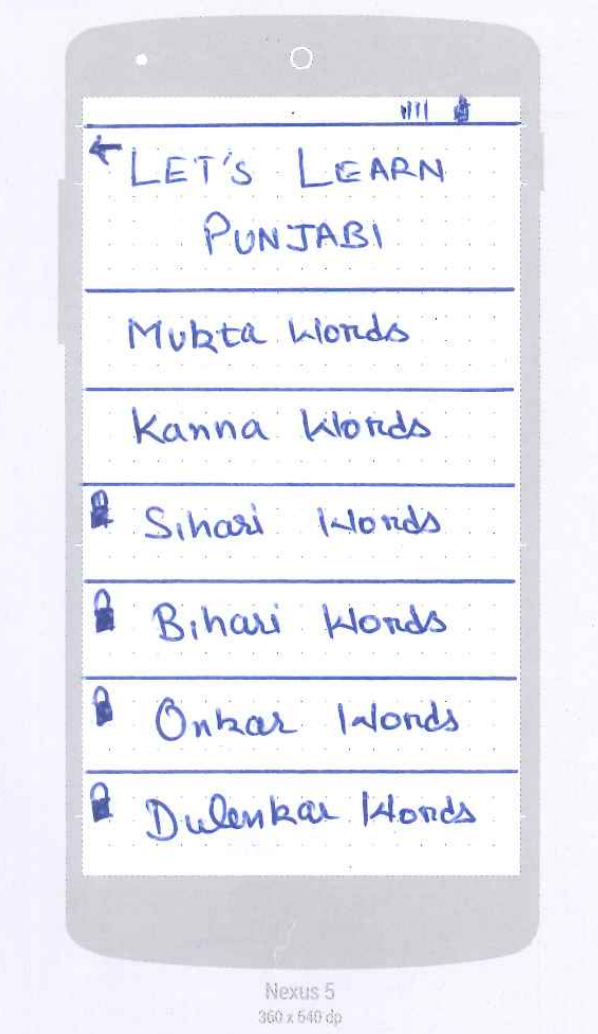 ←LET'S LEARN
PUNJABI
Mukta Words
Kanna Words
Sihari Words
Bihari Words
Onkar Words
Dulenkar Words
Nexus 5
360 x 640 dp